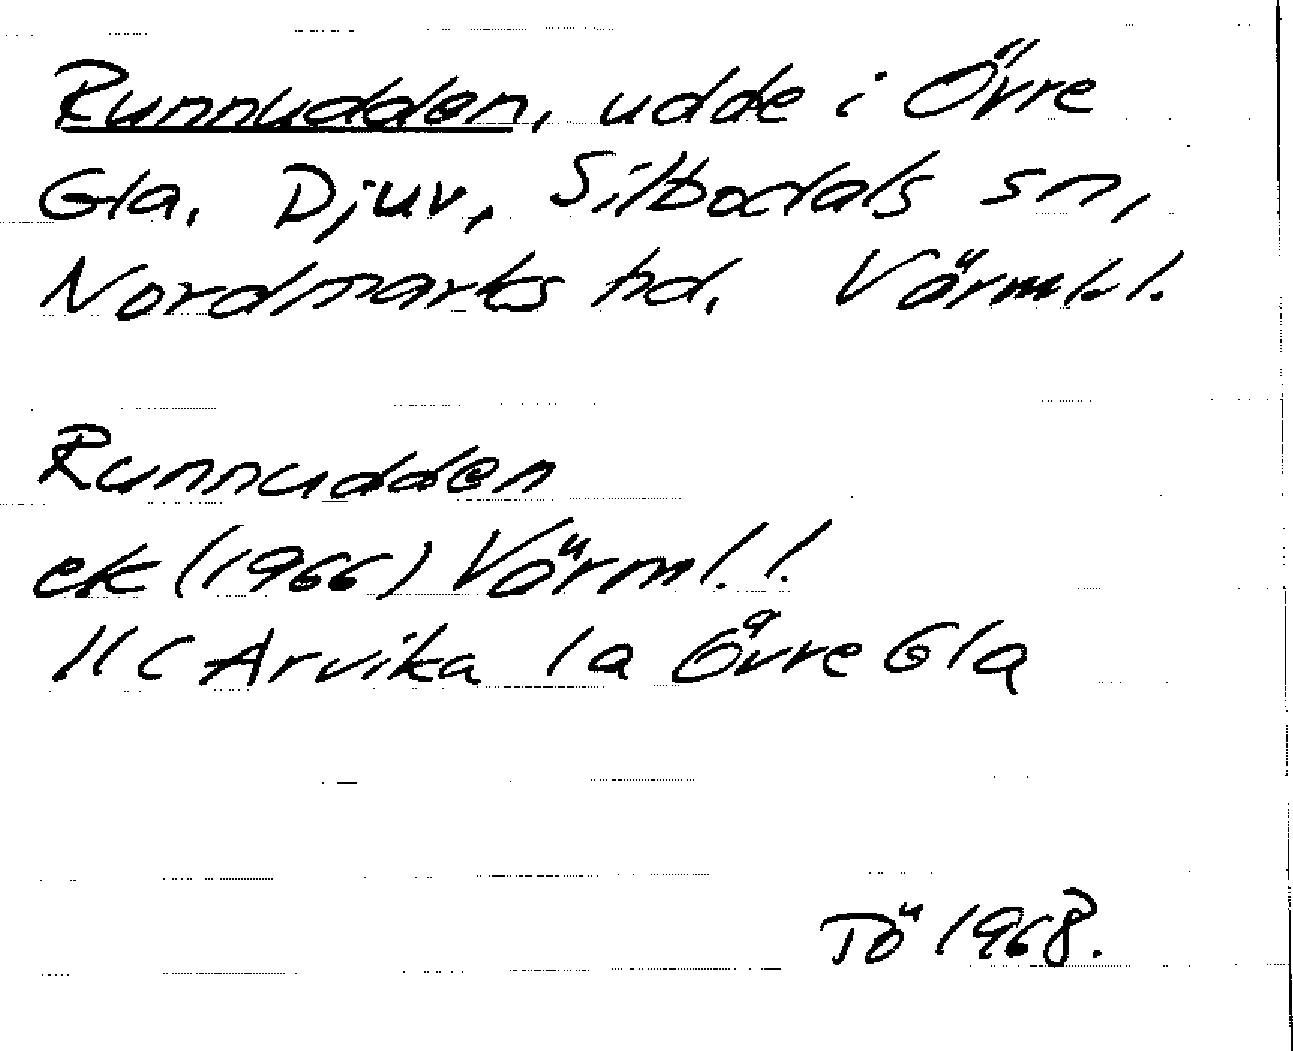 Runnudden, udde i Övre
Gla, Djuv, Silbodals sn,
Nordmarks hd. Värml.l.
Runnudden
ek (1966) Värml.l.
11C Arvika 1a Övre Gla
Tö 1968.